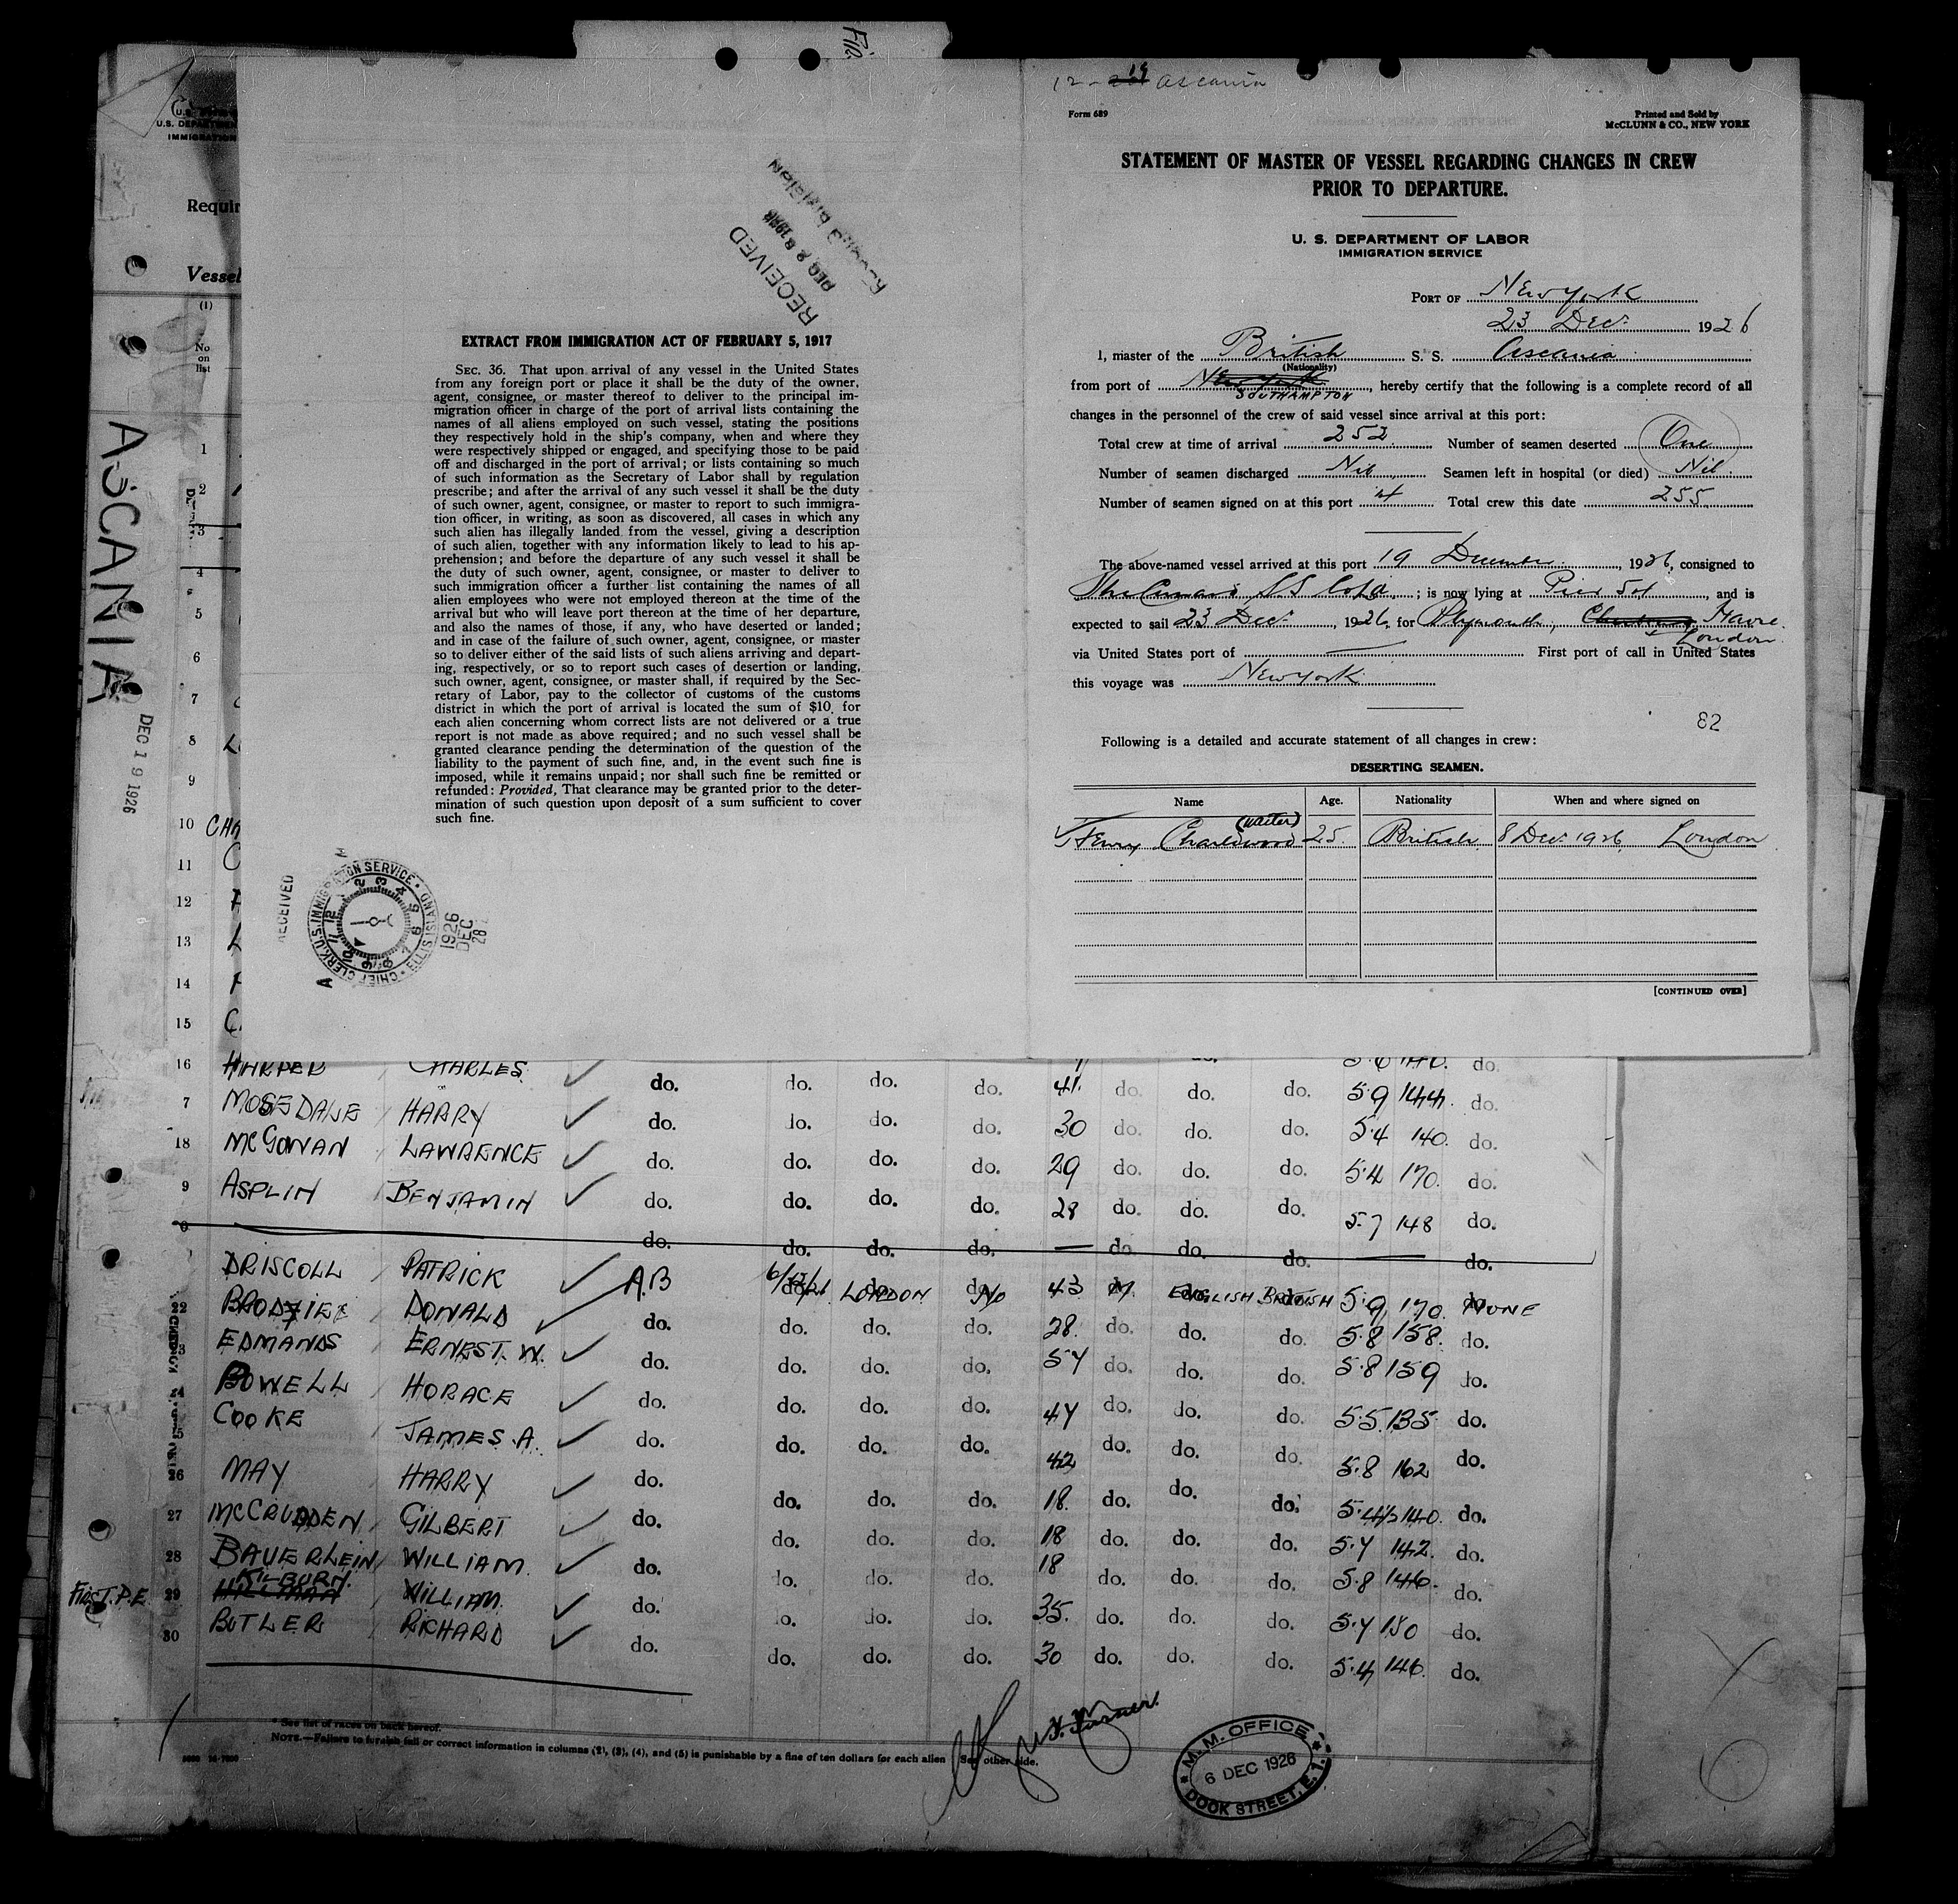 Fir.
12-19 Ascania
Form 689
Printed and Sold by
McCLUNN & CO., NEW YORK
STATEMENT OF MASTER OF VESSEL REGARDING CHANGES IN CREW
PRIOR TO DEPARTURE.
U. S. DEPARTMENT OF LABOR
IMMIGRATION SERVICE
PORT OF New York
23 Decr 1926
I, master of the British S. S. Ascania
(Nationality)
from port of New York, hereby certify that the following is a complete record of all
SOUTHAMPTON
changes in the personnel of the crew of said vessel since arrival at this port:
Total crew at time of arrival 252 Number of seamen deserted One
Number of seamen discharged Nil Seamen left in hospital (or died) Nil
Number of seamen signed on at this port 4 Total crew this date 255
The above-named vessel arrived at this port 19 December, 1926, consigned to
The Cunard SS Co Ld.; is now lying at Pier 54, and is
expected to sail 23 Decr, 1926, for Plymouth, Havre
London
via United States port of First port of call in United States
this voyage was New York
82
Following is a detailed and accurate statement of all changes in crew:
DESERTING SEAMEN.
Name Age. Nationality When and where signed on
(waiter)
Henry Charlswood 25. British 8 Decr 1926 London
[CONTINUED OVER]
RECEIVED
DEC 28 1926
RECORD DIVISION
EXTRACT FROM IMMIGRATION ACT OF FEBRUARY 5, 1917
SEC. 36. That upon arrival of any vessel in the United States
from any foreign port or place it shall be the duty of the owner,
agent, consignee, or master thereof to deliver to the principal im-
migration officer in charge of the port of arrival lists containing the
names of all aliens employed on such vessel, stating the positions
they respectively hold in the ship's company, when and where they
were respectively shipped or engaged, and specifying those to be paid
off and discharged in the port of arrival; or lists containing so much
of such information as the Secretary of Labor shall by regulation
prescribe; and after the arrival of any such vessel it shall be the duty
of such owner, agent, consignee, or master to report to such immigra-
tion officer, in writing, as soon as discovered, all cases in which any
such alien has illegally landed from the vessel, giving a description
of such alien, together with any information likely to lead to his ap-
prehension; and before the departure of any such vessel it shall be
the duty of such owner, agent, consignee, or master to deliver to
such immigration officer a further list containing the names of all
alien employees who were not employed thereon at the time of the
arrival but who will leave port thereon at the time of her departure,
and also the names of those, if any, who have deserted or landed;
and in case of the failure of such owner, agent, consignee, or master
so to deliver either of the said lists of such aliens arriving and depart-
ing, respectively, or so to report such cases of desertion or landing,
such owner, agent, consignee, or master shall, if required by the Sec-
retary of Labor, pay to the collector of customs of the customs
district in which the port of arrival is located the sum of $10 for
each alien concerning whom correct lists are not delivered or a true
report is not made as above required; and no such vessel shall be
granted clearance pending the determination of the question of the
liability to the payment of such fine, and, in the event such fine is
imposed, while it remains unpaid; nor shall such fine be remitted or
refunded: Provided, That clearance may be granted prior to the deter-
mination of such question upon deposit of a sum sufficient to cover
such fine.
RECEIVED
CHIEF CLERK, U.S. IMMIGRATION SERVICE • ELLIS ISLAND
1926
DEC
28
ASCANIA
DEC 19 1926
U.S. DEPARTMEN
IMMIGRATION
Requir
Vessel
(1)
No
on
list
1
2
3
4
5
6
7
8
9
10
11
12
13
14
15
16 HARPER CHARLES do. do. do. do. 41. do. do. do. 5.9 144. do.
7 MOSEDALE HARRY do. do. do. do. 30 do. do. do. 5.4 140. do.
18 McGOWAN LAWRENCE do. do. do. do. 29 do. do. do. 5.4 170. do.
9 ASPLIN BENJAMIN do. do. do. do. 28 do. do. do. 5.7 148 do.
do. do. do. do. — do. do. do. — do.
DRISCOLL PATRICK A.B LONDON No 43 M ENGLISH BRITISH 5.9 170. NONE
22 DONALD do. do. do. do. 28. do. do. do. 5.8 158. do.
3 EDMANDS ERNEST. W. do. do. do. do. 57 do. do. do. 5.8 159 do.
24 BOWELL HORACE do. do. do. do. 47 do. do. do. 5.5. 135 do.
5 COOKE JAMES A. do. do. do. do. 42 do. do. do. 5.8 162 do.
26 MAY HARRY do. do. do. do. 18. do. do. do. 5.4½ 140. do.
27 McCRUDDEN GILBERT do. do. do. do. 18 do. do. do. 5.7 142. do.
28 BAUERLEIN WILLIAM do. do. do. do. 18 do. do. do. 5.8 146. do.
KILBURN.
FIRST.P.E 29 WILLIAM. do. do. do. do. 35. do. do. do. 5.7 150 do.
30 BUTLER RICHARD do. do. do. do. 30 do. do. do. 5.4 146. do.
* See list of races on back hereof.
NOTE.—Failure to furnish full or correct information in columns (2), (3), (4), and (5) is punishable by a fine of ten dollars for each alien See other side.
M.M. OFFICE
6 DEC 1926
DOCK STREET, E.1.